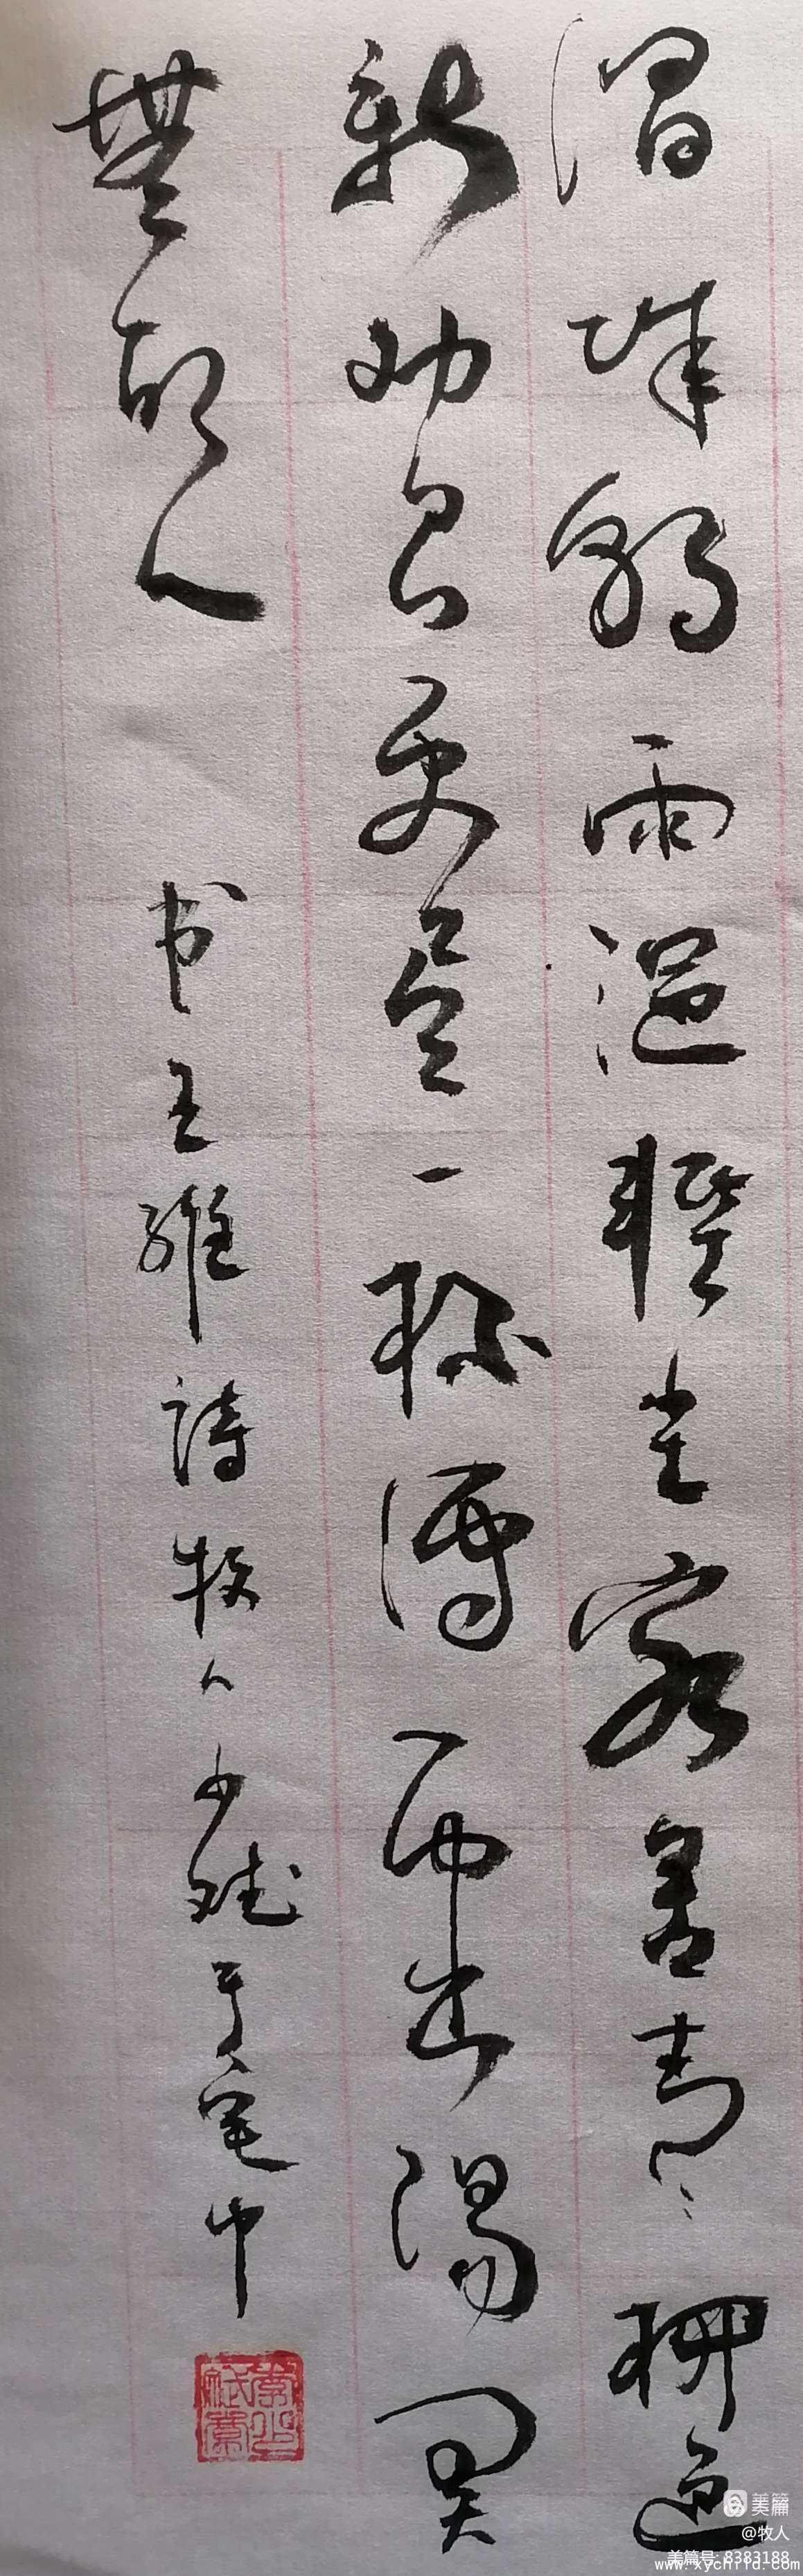 渭城朝雨浥輕尘客舍青々柳色
新劝君更尽一杯酒西出陽関
無故人
书王維詩牧人少斌于宅中
美篇
@牧人
美篇号: 8383188